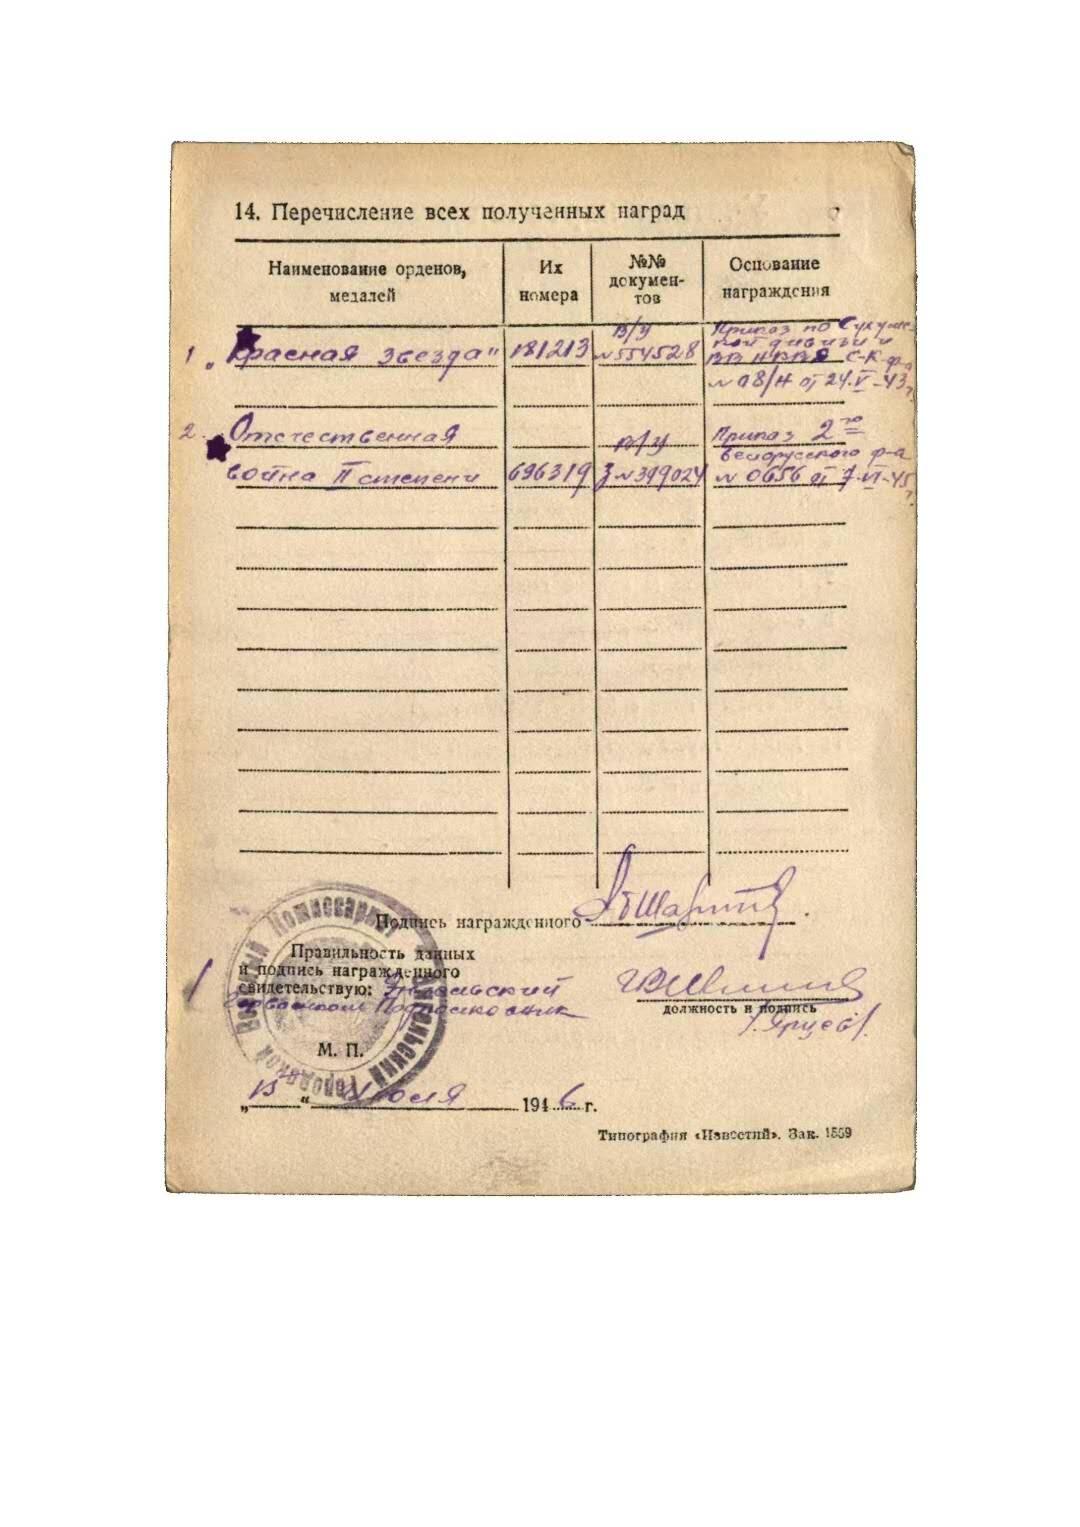 14. Перечисление всех полученных наград
Наименование орденов, медалей
Их номера
№№ докумен-тов
Основание награждения
1 „Красная звезда" 181213 в/у №554528 Приказ по Сухумской дивизии ВВ НКВД С-К ф-а № 08/н от 24.V-43г.
2. Отечественная
война II степени 696319 в/у З №399024 Приказ 2го Белорусского ф-а № 0656 от 7.VI-45г.
Подпись награжденного
Правильность данных
и подпись награжденного
свидетельствую:
Подполковник
должность и подпись
/Ярцев/.
Городской Военный Комиссариат
М. П.
„15" Июля 1946 г.
Типография «Известий». Зак. 1559